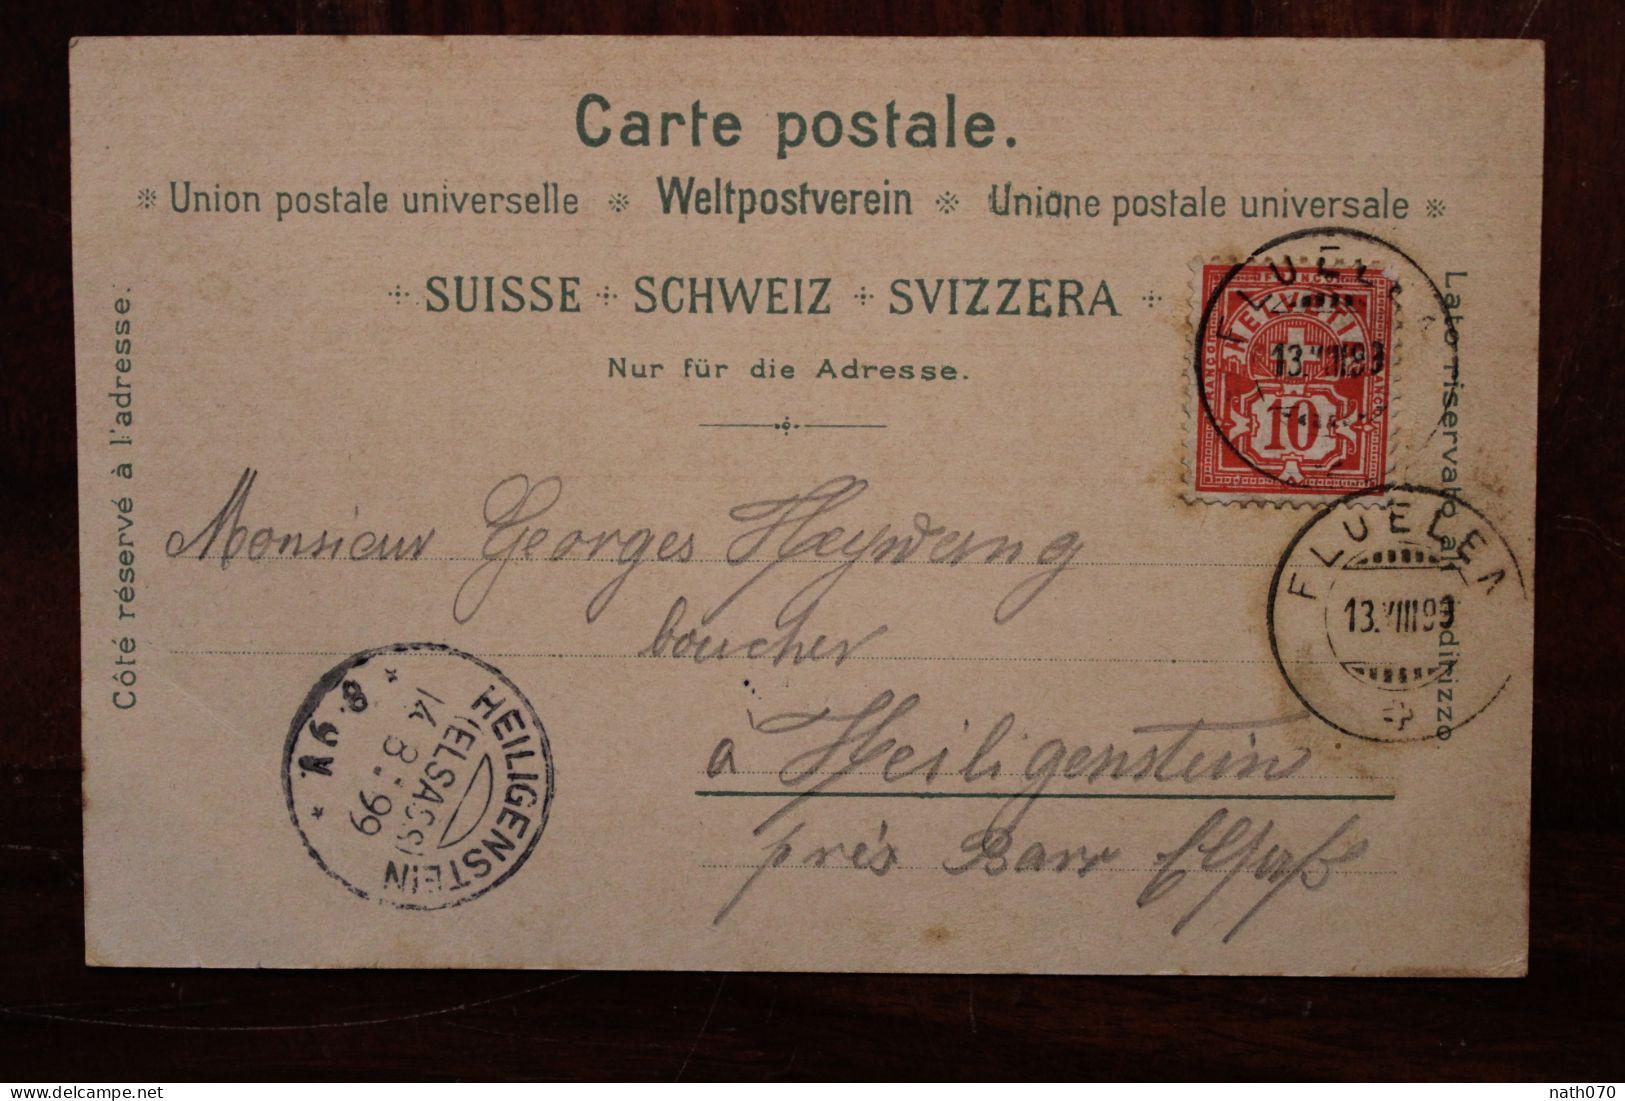 Carte postale.
※ Union postale universelle ※ Weltpostverein ※ Unione postale universale ※
SUISSE + SCHWEIZ + SVIZZERA
Nur für die Adresse.
Côté réservé à l'adresse.
Lato riservato all' dirizzo.
FRANCO
HELVETIA
FRANCO
10
FLUELEN
13.VIII 99
FLUELEN
13.VIII 99
Monsieur Georges Heywang
boucher
à Heiligenstein
près Barr Elsaß
HEILIGENSTEIN
(ELSASS)
14 8. 99
8-9 V.
delcampe.net
nath070